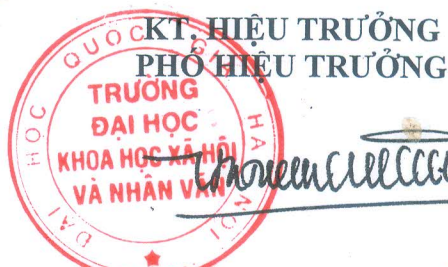 KT. HIỆU TRƯỞNG
PHÓ HIỆU TRƯỞNG
ĐẠI HỌC QUỐC GIA HÀ NỘI
TRƯỜNG
ĐẠI HỌC
KHOA HỌC XÃ HỘI
VÀ NHÂN VĂN